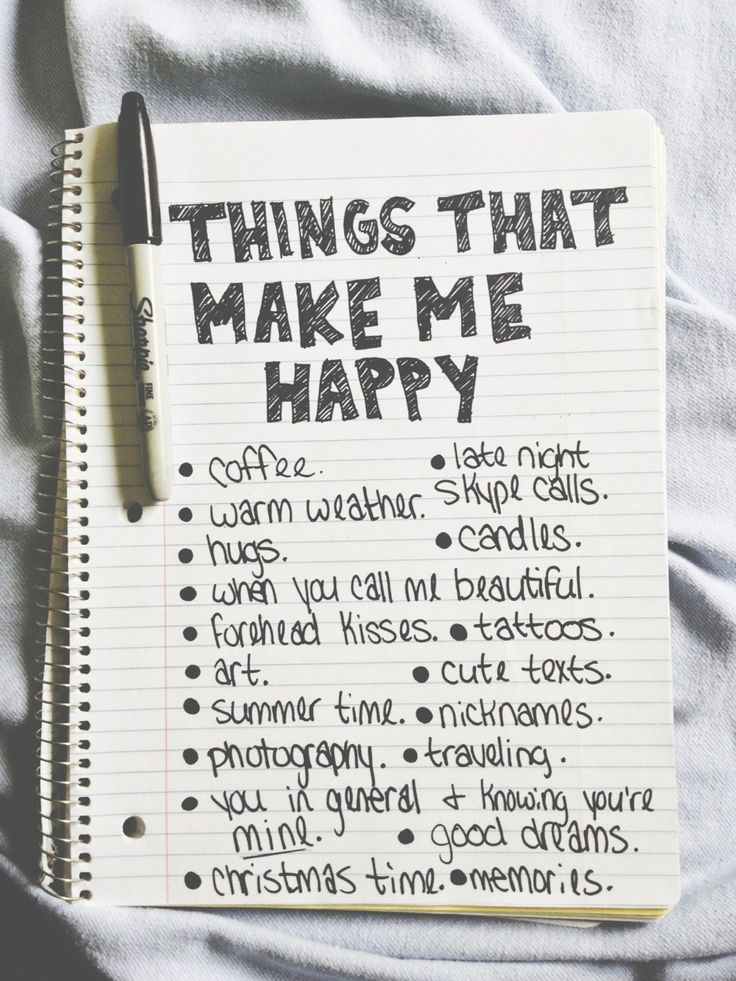 THINGS THAT
MAKE ME
HAPPY
Sharpie FINE
• coffee. • late night
skype calls.
• warm weather.
• hugs. • candles.
• when you call me beautiful.
• forehead kisses. • tattoos.
• art. • cute texts.
• summer time. • nicknames.
• photography. • traveling.
• you in general & knowing you're
mine. • good dreams.
• christmas time. • memories.